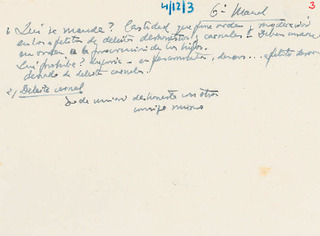 4/12/3 6º Mand. 3
1. Qué se manda? Castidad que pone orden y moderación
en los apetitos de deleites deshonestos y carnales.
en orden a la procreación de los hijos.
Qué prohibe? lujuria = en pensamientos, deseos... apetito desor-
denado de deleite carnal.
2) Deleite carnal
deshonesta con otros
consigo mismo